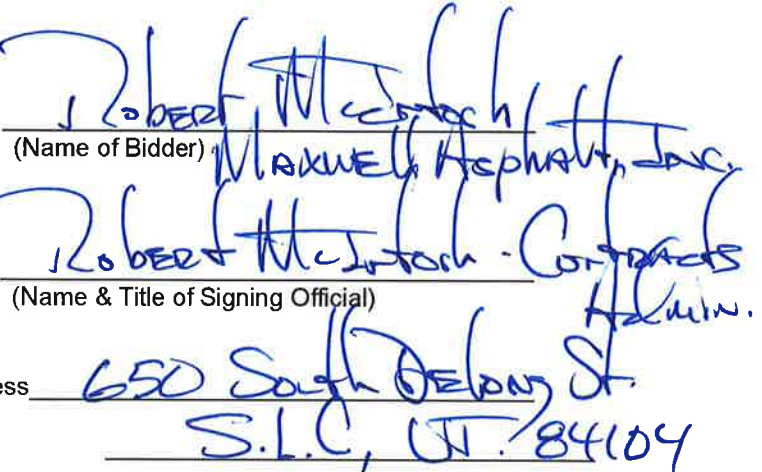 Robert McIntosh
(Name of Bidder) Maxwell Asphalt, Inc.
Robert McIntosh - Contracts
(Name & Title of Signing Official) Admin.
ess 650 South Delong St.
S.L.C, UT. 84104